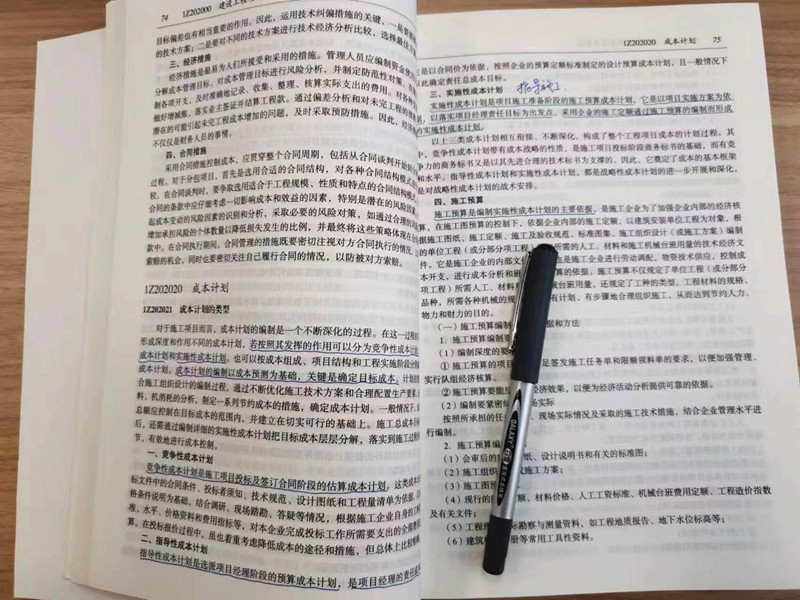 74 1Z202000 建设工程项
目标偏差也有相当重要的作用。因此，运用技术纠偏措施的关键，一是要能
的技术方案；二是要对不同的技术方案进行技术经济分析比较，选择最佳方
三、经济措施
经济措施是最易为人们所接受和采用的措施。管理人员应编制资金使
分解成本管理目标。对成本管理目标进行风险分析，并制定防范性对策。
制各项开支，及时准确地记录、收集、整理、核算实际支出的费用。对各种
做好增减账、落实业主签证并结算工程款。通过偏差分析和对未完工程的预
潜在的可能引起未完工程成本增加的问题，及时采取预防措施。因此，经济
不仅仅是财务人员的事情。
四、合同措施
采用合同措施控制成本，应贯穿整个合同周期，包括从合同谈判开始到合
过程。对于分包项目，首先是选用合适的合同结构，对各种合同结构模式进
较，在合同谈判时，要争取选用适合于工程规模、性质和特点的合同结构模式
合同的条款中应仔细考虑一切影响成本和效益的因素，特别是潜在的风险因素
起成本变动的风险因素的识别和分析，采取必要的风险对策，如通过合理的
增加承担风险的个体数量以降低损失发生的比例，并最终将这些策略体现在合
款中。在合同执行期间，合同管理的措施既要密切注视对方合同执行的情况，
索赔的机会；同时也要密切关注自己履行合同的情况，以防被对方索赔。
1Z202020 成本计划
1Z202021 成本计划的类型
对于施工项目而言，成本计划的编制是一个不断深化的过程。在这一过程
形成深度和作用不同的成本计划，若按照其发挥的作用可以分为竞争性成本计
成本计划和实施性成本计划。也可以按成本组成、项目结构和工程实施阶段
成本计划。成本计划的编制以成本预测为基础，关键是确定目标成本。计划的
合施工组织设计的编制过程，通过不断优化施工技术方案和合理配置生产要素
料、机消耗的分析，制定一系列节约成本的措施，确定成本计划。一般情况下，
总额应控制在目标成本的范围内，并建立在切实可行的基础上。施工总成本目标
后，还需通过编制详细的实施性成本计划把目标成本层层分解，落实到施工过程
节，有效地进行成本控制。
一、竞争性成本计划
竞争性成本计划是施工项目投标及签订合同阶段的估算成本计划。这类成本
标文件中的合同条件、投标者须知、技术规范、设计图纸和工程量清单为依据，以
格条件说明为基础，结合调研、现场踏勘、答疑等情况，根据施工企业自身的工
准、水平、价格资料和费用指标等，对本企业完成投标工作所需要支出的全部费
算。在投标报价过程中，虽也着重考虑降低成本的途径和措施，但总体上比较粗
二、指导性成本计划
指导性成本计划是选派项目经理阶段的预算成本计划，是项目经理的责任成
1Z202020 成本计划 75
是以合同价为依据，按照企业的预算定额标准制定的设计预算成本计划，且一般情况下
以此确定责任总成本目标。
三、实施性成本计划 指导施工
实施性成本计划是项目施工准备阶段的施工预算成本计划，它是以项目实施方案为依
据，以落实项目经理责任目标为出发点，采用企业的施工定额通过施工预算的编制而形成
的实施性成本计划。
以上三类成本计划相互衔接、不断深化，构成了整个工程项目成本的计划过程。其
中，竞争性成本计划带有成本战略的性质，是施工项目投标阶段商务标书的基础，而有竞
争力的商务标书又是以其先进合理的技术标书为支撑的。因此，它奠定了成本的基本框架
和水平。指导性成本计划和实施性成本计划，都是战略性成本计划的进一步开展和深化，
是对战略性成本计划的战术安排。
四、施工预算
施工预算是编制实施性成本计划的主要依据，是施工企业为了加强企业内部的经济核
算，在施工图预算的控制下，依据企业内部的施工定额，以建筑安装单位工程为对象，根
据施工图纸、施工定额、施工及验收规范、标准图集、施工组织设计（或施工方案）编制
的单位工程（或分部分项工程） 所需的人工、材料和施工机械台班用量的技术经济文
件。它是施工企业的内部文 也是施工企业进行劳动调配，物资技术供应，控制成
本开支，进行成本分析和班 算的依据。施工预算不仅规定了单位工程（或分部分
项工程）所需人工、材料 械台班用量，还规定了工种的类型，工程材料的规格、
品种，所需各种机械的规 有计划、有步骤地合理组织施工，从而达到节约人力、
物力和财力的目的。
（一）施工预算编制 据和方法
1. 施工预算编制
（1）编制深度的要
①施工预算的项 足签发施工任务单和限额领料单的要求，以便加强管理、
实行队组经济核算。
②施工预算要能 经济效果，以便为经济活动分析提供可靠的依据。
（2）编制要紧密结 场实际
按照所承担的任 现场实际情况及采取的施工技术措施，结合企业管理水平进
行编制。
2. 施工预算编
（1）会审后的 、设计说明书和有关的标准图；
（2）施工组织 或施工方案；
（3）施工图预
（4）现行的 额、材料价格、人工工资标准、机械台班费用定额、工程造价指数
及有关文件；
（5）工程现 勘察与测量资料，如工程地质报告、地下水位标高等；
（6）建筑材 册等常用工具性资料。
GALAXY